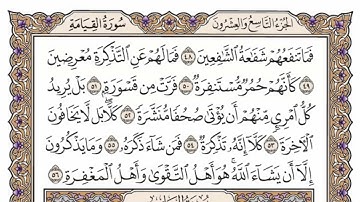 الجزء التاسع والعشرون
سورة القيامة
فَمَا تَنفَعُهُمْ شَفَٰعَةُ ٱلشَّٰفِعِينَ ٤٨ فَمَا لَهُمْ عَنِ ٱلتَّذْكِرَةِ مُعْرِضِينَ
٤٩ كَأَنَّهُمْ حُمُرٌ مُّسْتَنفِرَةٌ ٥٠ فَرَّتْ مِن قَسْوَرَةٍ ٥١ بَلْ يُرِيدُ
كُلُّ ٱمْرِئٍ مِّنْهُمْ أَن يُؤْتَىٰ صُحُفًا مُّنَشَّرَةً ٥٢ كَلَّا بَل لَّا يَخَافُونَ
ٱلْءَاخِرَةَ ٥٣ كَلَّا إِنَّهُۥ تَذْكِرَةٌ ٥٤ فَمَن شَآءَ ذَكَرَهُۥ ٥٥ وَمَا يَذْكُرُونَ
إِلَّا أَن يَشَآءَ ٱللَّهُ هُوَ أَهْلُ ٱلتَّقْوَىٰ وَأَهْلُ ٱلْمَغْفِرَةِ ٥٦